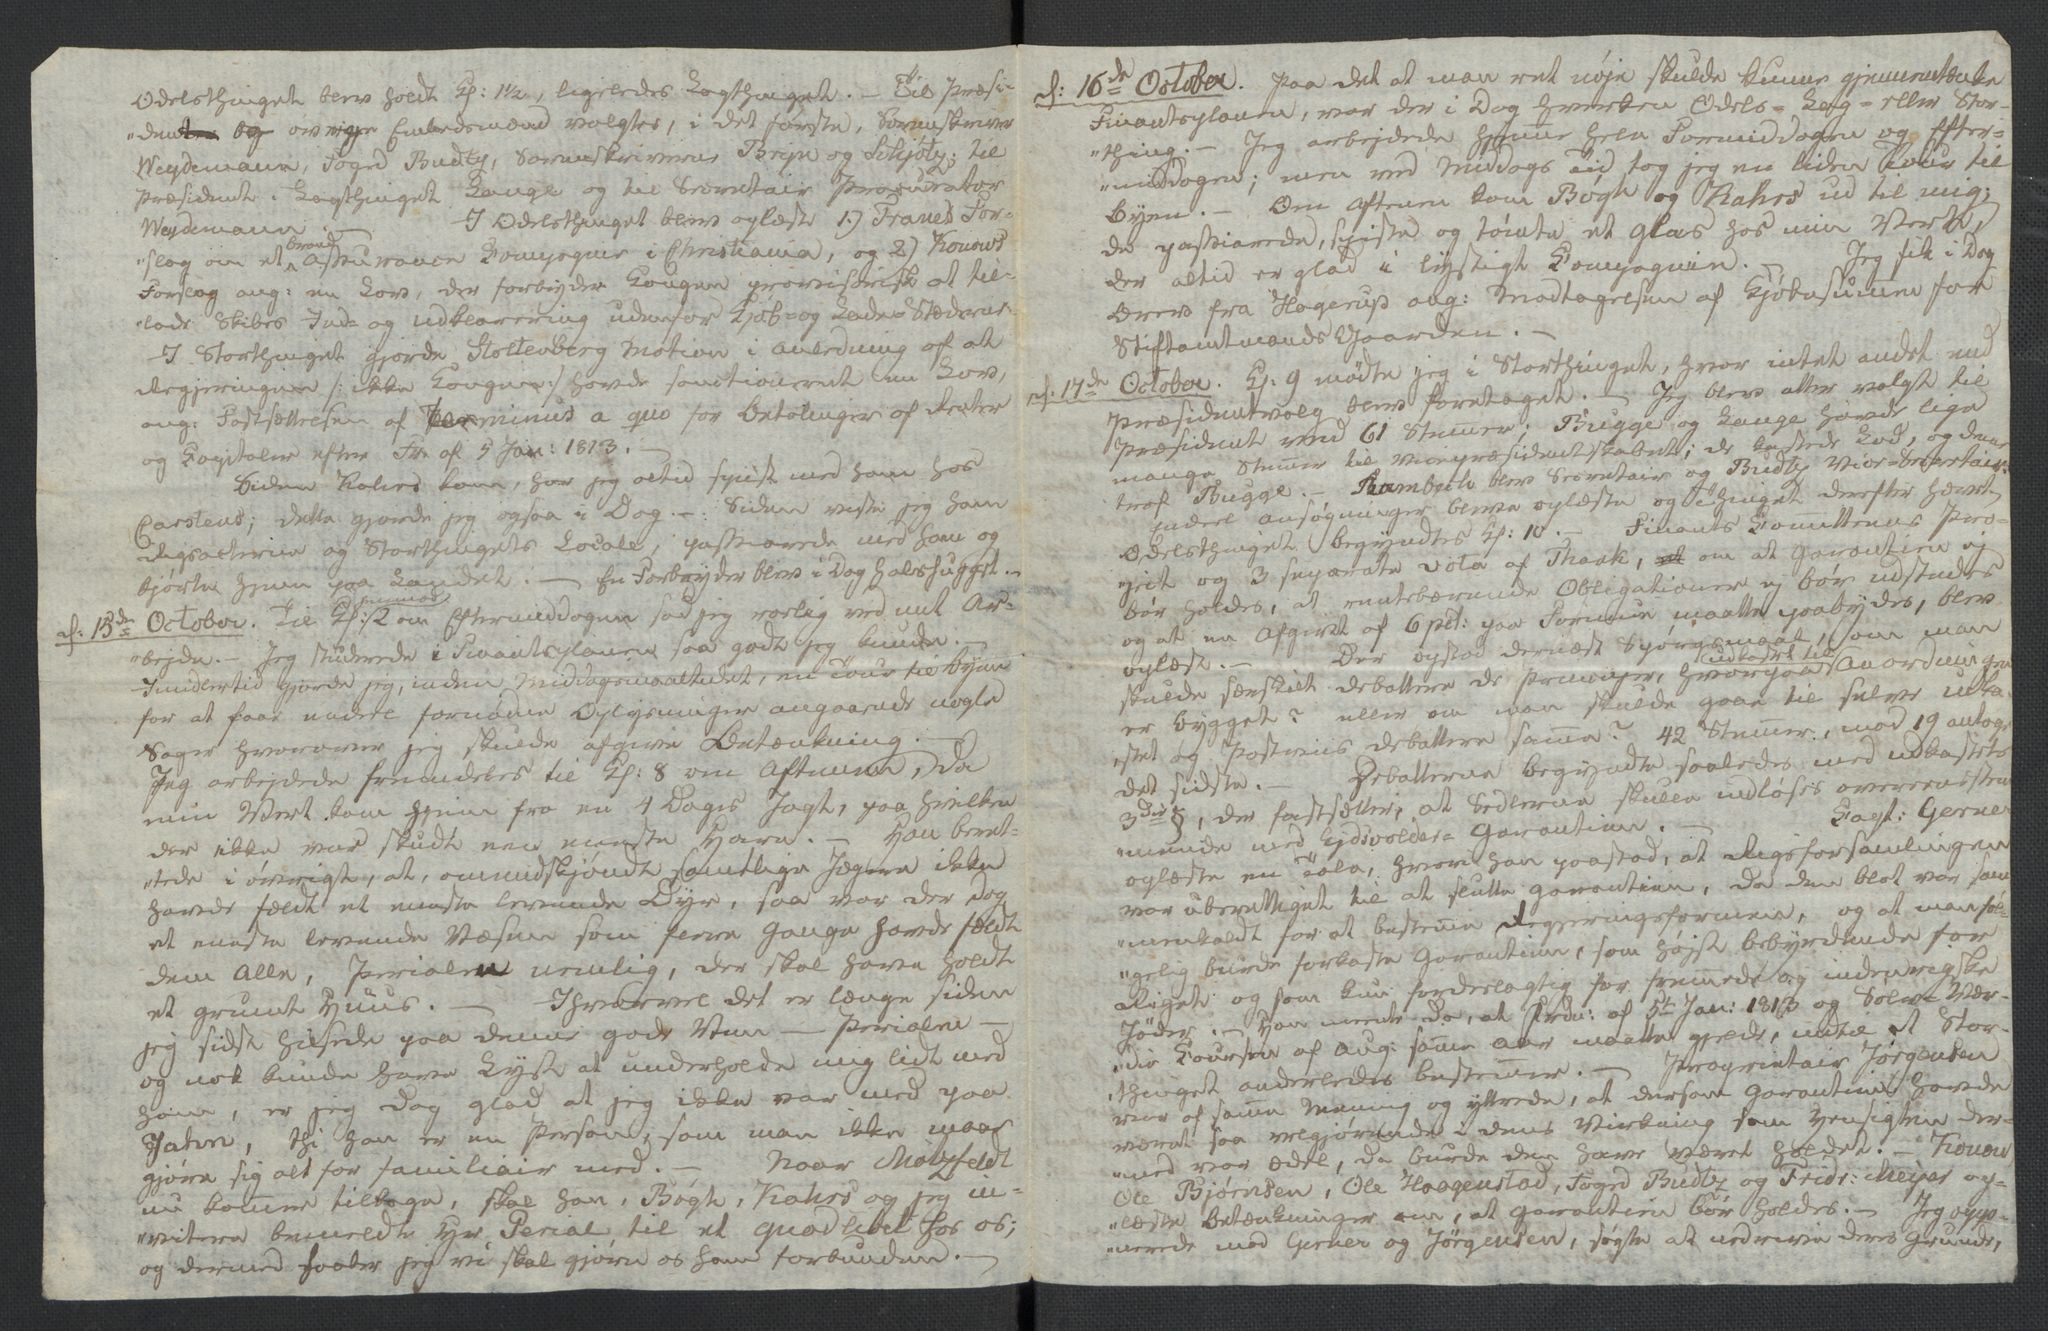 Odelsthinget blev holdt Kl: 1½, ligeledes Lagthinget. — Til Præsi-
"dent og øvrige Embedsmænd valgtes, i det første, Sorenskriver
Weydemann, Foged Budtz, Sorenskriverne Brun og Schjøtz; til
Præsident i Lagthinget Lange og til Secretair Procurator
Weydemann. — I Odelsthinget blev oplæst 1.) Franes For-
"slag om et brand Assurance Compagnie i Christiania, og 2) Konows
Forslag ang: en Lov, der forbyder Kongen provisorisk at til-
"lade Skibes Ind- og udklarering udenfor Kjøb- og Lade-Stæderne.
— I Storthinget gjorde Stoltenberg Motion i anledning af at
Regjeringen /: ikke Kongen :/ havde sanctioneret en Lov,
ang: Fastsættelsen af Terminus a quo for Betalinger af Renter
og Capitaler efter Fr. af 5 Jan: 1813. —
Siden Kahrs kom, har jeg altid spiist med ham hos
Carstens; dette gjorde jeg ogsaa i Dag. — Siden viste jeg ham
Rigsacterne og Storthingets Locale, passiarede med ham og
kjørte hjem paa Landet. — En Forbryder blev i Dag halshugget. —
d: 15de October. Til Kl: 12 om Eftermiddagen sad jeg rolig ved mit Ar-
"bejde. — Jeg studerede i Finantsplanen saa godt jeg kunde. —
Imidlertid gjorde jeg, inden Middagsmaaltidet, en Tour til Byen
for at faae endeel fornødne Oplysninger angaaende nogle
Sager hvorover jeg skulde afgive Betænkning. —
Jeg arbejdede fremdeles til Kl: 8 om Aftenen, da
min Vert kom hjem fra en 4 Dages Jagt, paa hvilken
der ikke var skudt een eneste Hare. — Han beret-
"tede i øvrigt, at, omendskjøndt samtlige Jægere ikke
havde fældt et eneste levende Dyr, saa var der dog
et eneste levende Væsen som flere Gange havde fældt
dem Alle, Perialen nemlig, der skal have holdt
et grumt Huus. — Ihvorvel det er længe siden
jeg sidst hilsede paa denne gode Ven — Perialen —
og nok kunde have Lyst at underholde mig lidt med
ham, er jeg dog glad at jeg ikke var med paa
Jaten, thi han er en Person, som man ikke maae
gjøre sig alt for familiair med. — Naar Motzfeldt
nu kommer tilbage, skal han, Bøgh, Kahrs og jeg in-
"vitere bemeldte Hr. Perial til et Quodlibet hos os;
og dermed haaber jeg vi skal gjøre os ham forbunden. —
d: 16de October. Paa det at man ret nøje skulde kunne gjennemtænke
Finantsplanen, var der i Dag hverken Odels- Lag- eller Stor-
"thing. — Jeg arbejdede hjemme hele Formiddagen og Efter-
"middagen; men ved Middags Tid tog jeg en liden Tour til
Byen. — Om Aftenen kom Bøgh og Kahrs ud til mig;
de passiarede, spiste og tømte et Glas hos min Vert,
der altid er glad i lystigt Compagnie. — Jeg fik i Dag
Brev fra Hagerup ang: Modtagelsen af Kjøbesummen for
Stiftamtmands Gaarden. —
d: 17de October. Kl: 9 mødte jeg i Storthinget, hvor intet andet end
Præsidentvalg blev foretaget. — Jeg blev atter valgt til
Præsident med 61 Stemmer; Bugge og Lange havde lige
mange Stemmer til Vicepræsidentskabet; de kastede Lod, og denne
traf Bugge. — Rambech blev Secretair og Budtz Vice-Secretair.
Endeel ansøgninger bleve oplæste og Thinget derefter hævet.
Odelsthinget begyndtes Kl: 10. — Finants Committeens Pro-
"jet og 3 separate vota af Thaak, om at Garantien ej
bør holdes, at rentebærende Obligationer ej bør udstædes
og at en Afgivt af 6 pCt: paa Formue maatte paabydes, blev
oplæst. — Der opstod dernæst Spørgsmaal, om man
skulde særskilt debattere de Principer, hvorpaa udkastet til Anordningen
er bygget? eller om man skulde gaae til selve udka-
"stet og Postviis debattere samme? 42 Stemmer, mod 19 antoge
det sidste. — Debatterne begyndte saaledes med udkastets
3die §, der fastsætter, at Sedlerne skulle indløses overeenstem
"mende med Ejdsvolds- Garantien. — Capt: Gerner
oplæste en Tale, hvori han paastod, at Rigsforsamlingen
var uberettiget til at slutte Garantien, da den blot var sam
"menkaldt for at bestemme Regjeringsformen, og at man føl-
"gelig burde forkaste Garantien, som højst bebyrdende for
Riget og som kun fordelagtig for fremmede og indenrigske
Jøder. — Han meente da, at Frdn: af 5te Jan: 1813 og Sølv-Vær-
"die Coursen af Aug: samme Aar maatte gjelde, indtil et Stor-
"thinget anderledes bestemmer. — Proprietair Jørgensen
var af samme Mening og yttrede, at dersom Garantien havde
været saa velgjørende i dens Virkning som Hensigten der-
"med var ædel, da burde den have været holdet. — Konow
Ole Bjørnsen, Ole Haagenstad, Foged Budtz og Fridr: Meyer op-
"læste Betænkninger om, at Garantien bør holdes. — Jeg oppo-
"nerede mod Gerner og Jørgensen, søgte at nedrive deres Grunde,